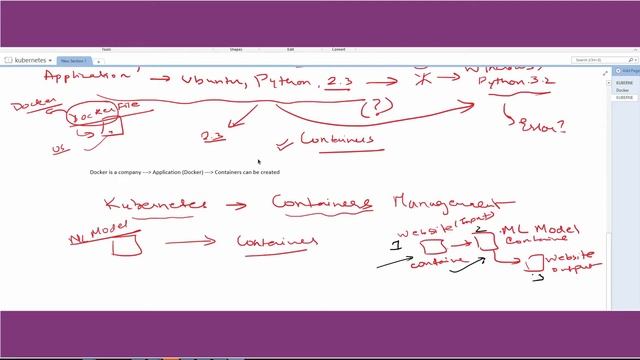 Tools Shapes Convert
kubernetes
New Section 1
Add Page
KUBERNE
Docker
KUBERNE
Application, → Ubuntu, Python, 2.3 → Windows,
Python 3.2
Docker
Docker File
(?)
Error?
OS
2.3
Containers
Docker is a company ---> Application (Docker) ---> Containers can be created
Kubernetes → Containers Management
ML Model
→ Container
website (Input)
1
2
ML Model
Container
containe
website
output
3